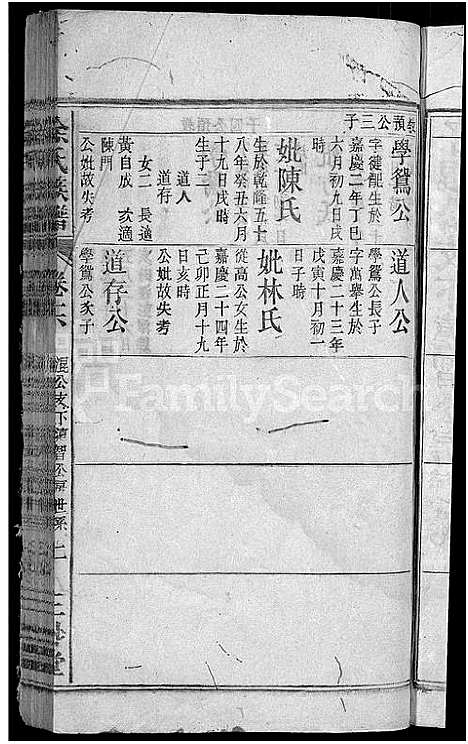 學鴛公
字健能生於
嘉慶二年丁巳
六月初九日戌
時
妣陳氏
生於乾隆五十
八年癸丑六月
十九日戌時
生于二
道人
道存
女二 長適
黃自成 次適
陳門
公妣故失考
道人公
學鴛公長子
字萬舉生於
嘉慶二十三年
戊寅十月初一
日子時
妣林氏
從高公女生於
嘉慶二十四年
己卯正月十九
日亥時
公妣故失考
道存公
學鴛公次子
余氏族譜
卷六
FamilySearch